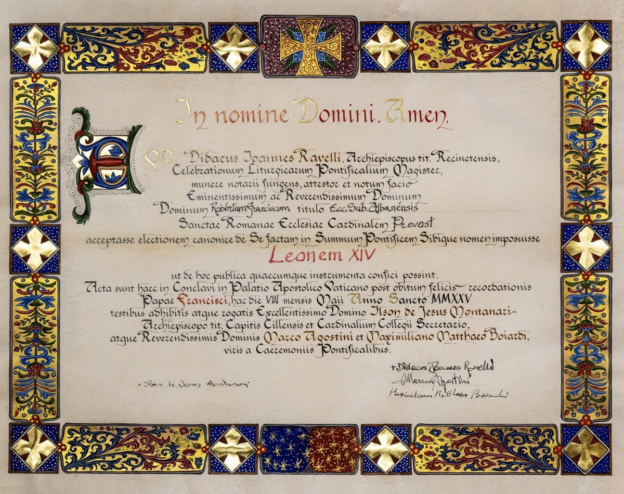 In nomine Domini. Amen.
EGO Didacus Ioannes Ravelli, Archiepiscopus tit. Recinetensis,
Celebrationum Liturgicarum Pontificalium Magister,
munere notarii fungens, attestor et notum facio
Eminentissimum ac Reverendissimum Dominum
Dominum Robertum Franciscum titulo Ecc. Sub. Albanensis
Sanctae Romanae Ecclesiae Cardinalem Prevost
acceptasse electionem canonice de Se factam in Summum Pontificem Sibique nomen imposuisse
Leonem XIV
ut de hoc publica quaecumque instrumenta confici possint.
Acta sunt haec in Conclavi in Palatio Apostolico Vaticano post obitum felicis recordationis
Papae Francisci, hac die VIII mensis Maii Anno Sancto MMXXV
testibus adhibitis atque rogatis Excellentissimo Domino Ilson de Jesus Montanari
Archiepiscopo tit. Capitis Cillensis et Cardinalium Collegii Secretario,
atque Reverendissimis Dominis Marco Agostini et Maximiliano Matthaeo Boiardi,
viris a Caeremoniis Pontificalibus.